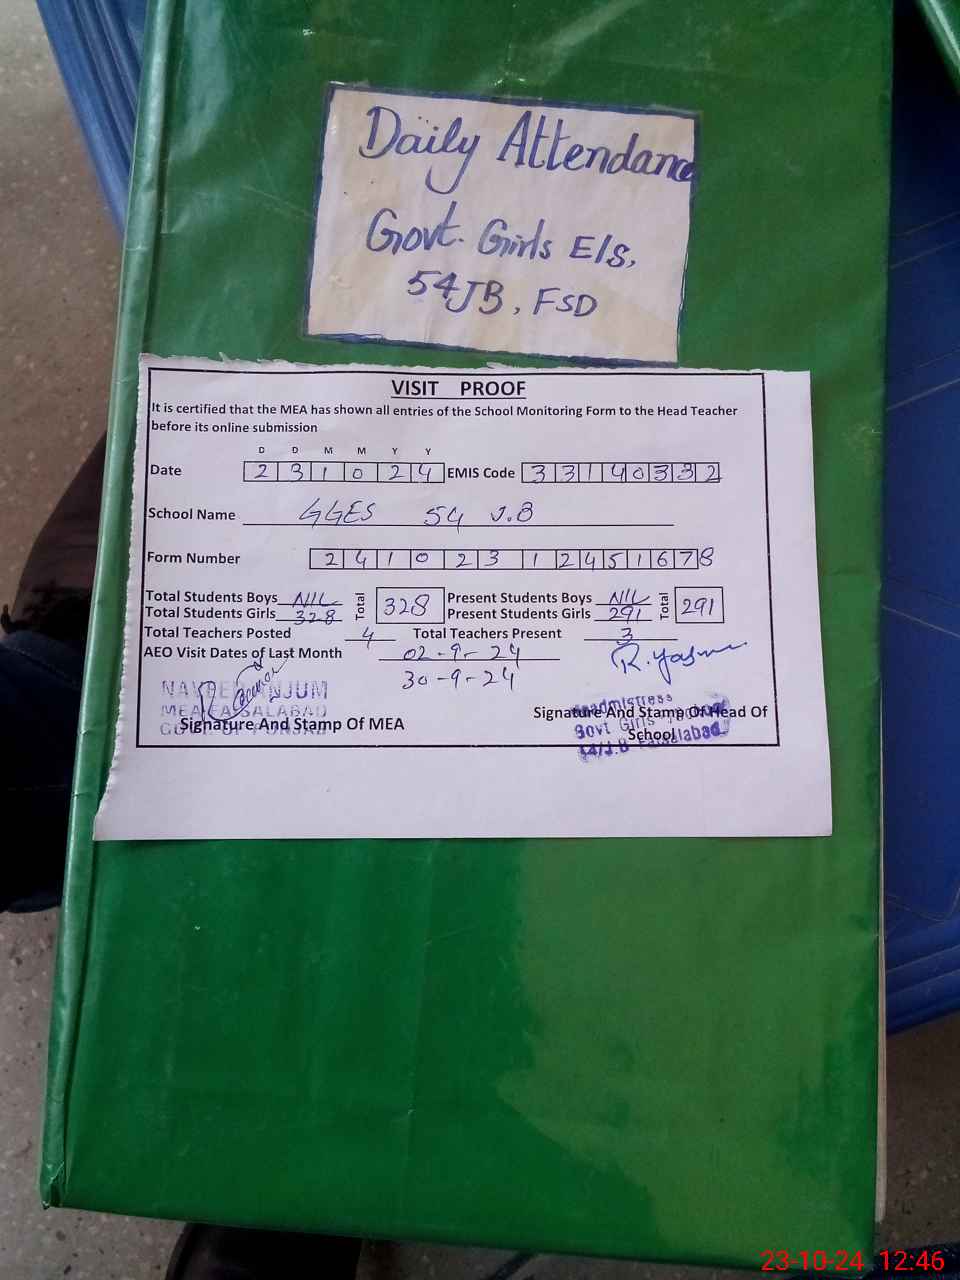 Daily Attendance
Govt. Girls E/S,
54JB, FSD
VISIT PROOF
It is certified that the MEA has shown all entries of the School Monitoring Form to the Head Teacher
before its online submission
D D M M Y Y
Date 2 3 1 0 2 4 EMIS Code 3 3 1 4 0 3 3 2
School Name GGES 54 J.B
Form Number 2 4 1 0 2 3 1 2 4 5 1 6 7 8
Total Students Boys NIL Total 328 Present Students Boys NIL Total 291
Total Students Girls 328 Present Students Girls 291
Total Teachers Posted 4 Total Teachers Present 3
AEO Visit Dates of Last Month 02-9-24
30-9-24
R.Yasmin
ANJUM
MEA FAISALABAD
GOVT OF PUNJAB
Signature And Stamp Of MEA
Headmistress
Signature And Stamp Of Head Of
Govt Girls
School
J.B Faisalabad
23-10-24 12:46